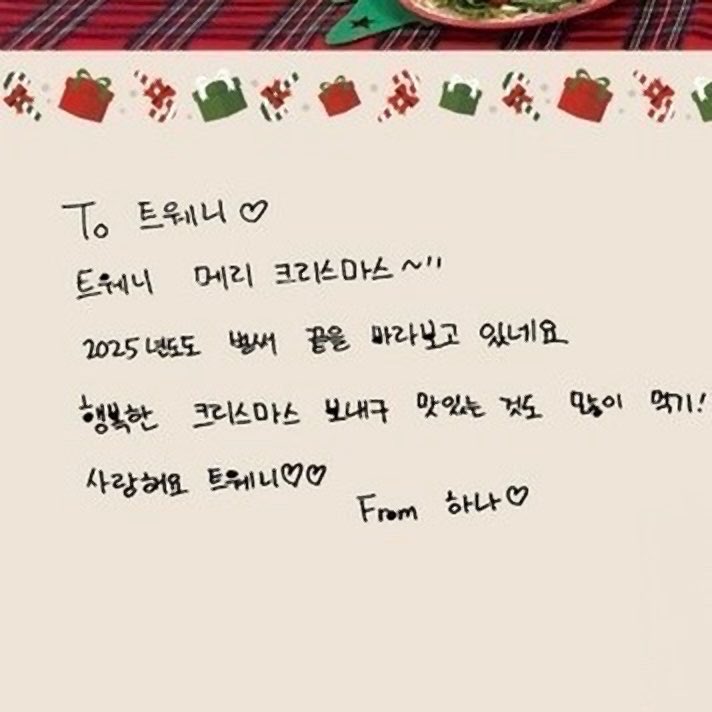 To 트웨니♡
트웨니 메리 크리스마스~!!
2025년도도 벌써 끝을 바라보고 있네요
행복한 크리스마스 보내구 맛있는 것도 많이 먹기!
사랑해요 트웨니♡♡
From 하나♡